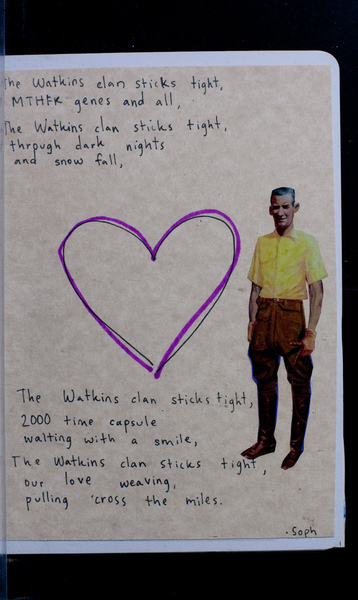 The Watkins clan sticks tight,
MTHFR genes and all,
The Watkins clan sticks tight,
through dark nights
and snow fall,
The Watkins clan sticks tight,
2000 time capsule
waiting with a smile,
The Watkins clan sticks tight,
our love weaving,
pulling 'cross the miles.
- Soph